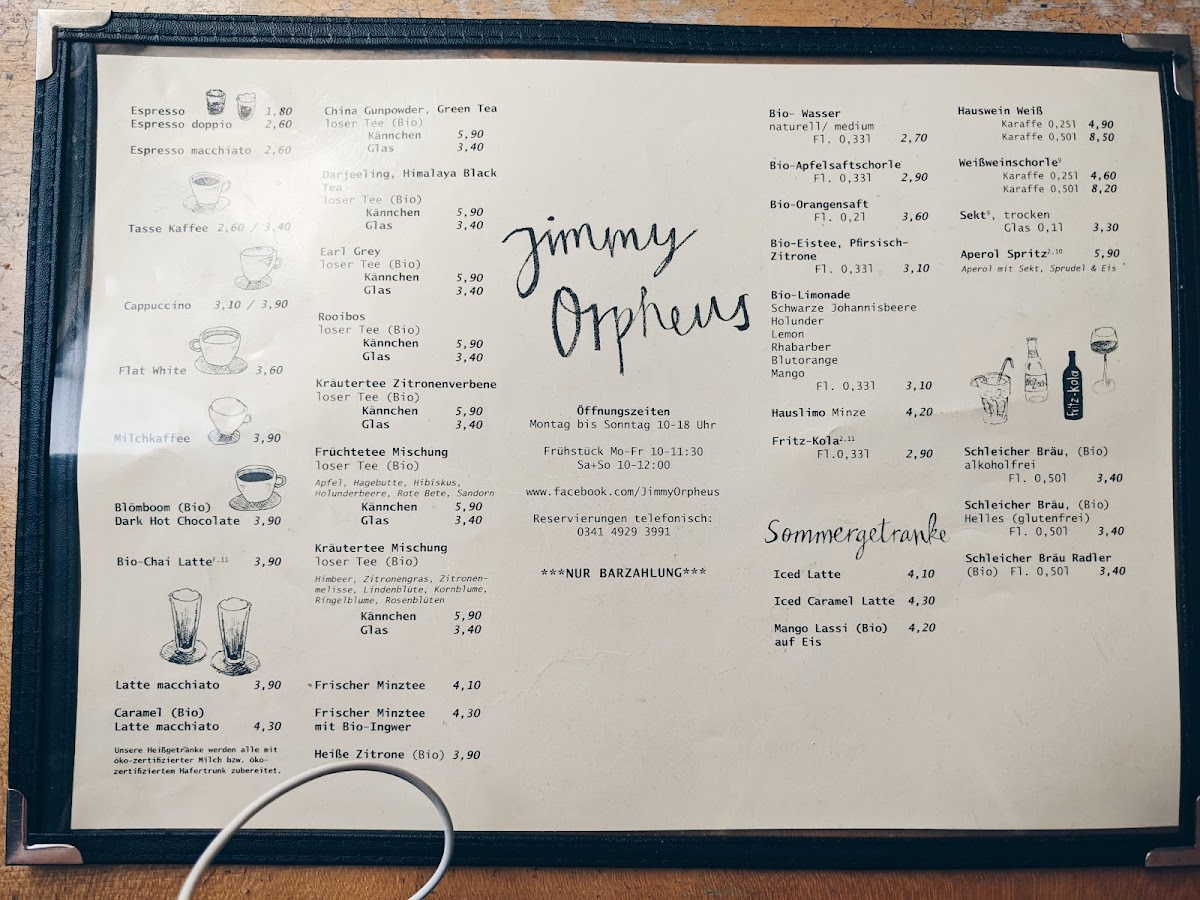 Espresso 1,80
Espresso doppio 2,60
Espresso macchiato 2,60
Tasse Kaffee 2,60 / 3,40
Cappuccino 3,10 / 3,90
Flat White 3,60
Milchkaffee 3,90
Blömboom (Bio)
Dark Hot Chocolate 3,90
Bio-Chai Latte F,11 3,90
Latte macchiato 3,90
Caramel (Bio)
Latte macchiato 4,30
Unsere Heißgetränke werden alle mit
öko-zertifizierter Milch bzw. öko-
zertifiziertem Hafertrunk zubereitet.
China Gunpowder, Green Tea
loser Tee (Bio)
Kännchen 5,90
Glas 3,40
Darjeeling, Himalaya Black
Tea
loser Tee (Bio)
Kännchen 5,90
Glas 3,40
Earl Grey
loser Tee (Bio)
Kännchen 5,90
Glas 3,40
Rooibos
loser Tee (Bio)
Kännchen 5,90
Glas 3,40
Kräutertee Zitronenverbene
loser Tee (Bio)
Kännchen 5,90
Glas 3,40
Früchtetee Mischung
loser Tee (Bio)
Apfel, Hagebutte, Hibiskus,
Holunderbeere, Rote Bete, Sandorn
Kännchen 5,90
Glas 3,40
Kräutertee Mischung
loser Tee (Bio)
Himbeer, Zitronengras, Zitronen-
melisse, Lindenblüte, Kornblume,
Ringelblume, Rosenblüten
Kännchen 5,90
Glas 3,40
Frischer Minztee 4,10
Frischer Minztee 4,30
mit Bio-Ingwer
Heiße Zitrone (Bio) 3,90
Jimmy
Orpheus
Öffnungszeiten
Montag bis Sonntag 10-18 Uhr
Frühstück Mo-Fr 10-11:30
Sa+So 10-12:00
www.facebook.com/JimmyOrpheus
Reservierungen telefonisch:
0341 4929 3991
***NUR BARZAHLUNG***
Bio- Wasser
naturell/ medium
Fl. 0,33l 2,70
Bio-Apfelsaftschorle
Fl. 0,33l 2,90
Bio-Orangensaft
Fl. 0,2l 3,60
Bio-Eistee, Pfirsisch-
Zitrone
Fl. 0,33l 3,10
Bio-Limonade
Schwarze Johannisbeere
Holunder
Lemon
Rhabarber
Blutorange
Mango
Fl. 0,33l 3,10
Hauslimo Minze 4,20
Fritz-Kola 2,11
Fl.0,33l 2,90
Sommergetränke
Iced Latte 4,10
Iced Caramel Latte 4,30
Mango Lassi (Bio) 4,20
auf Eis
Hauswein Weiß
Karaffe 0,25l 4,90
Karaffe 0,50l 8,50
Weißweinschorle 9
Karaffe 0,25l 4,60
Karaffe 0,50l 8,20
Sekt 9, trocken
Glas 0,1l 3,30
Aperol Spritz 2,10 5,90
Aperol mit Sekt, Sprudel & Eis
fritz-kola
Schleicher Bräu, (Bio)
alkoholfrei
Fl. 0,50l 3,40
Schleicher Bräu, (Bio)
Helles (glutenfrei)
Fl. 0,50l 3,40
Schleicher Bräu Radler
(Bio) Fl. 0,50l 3,40